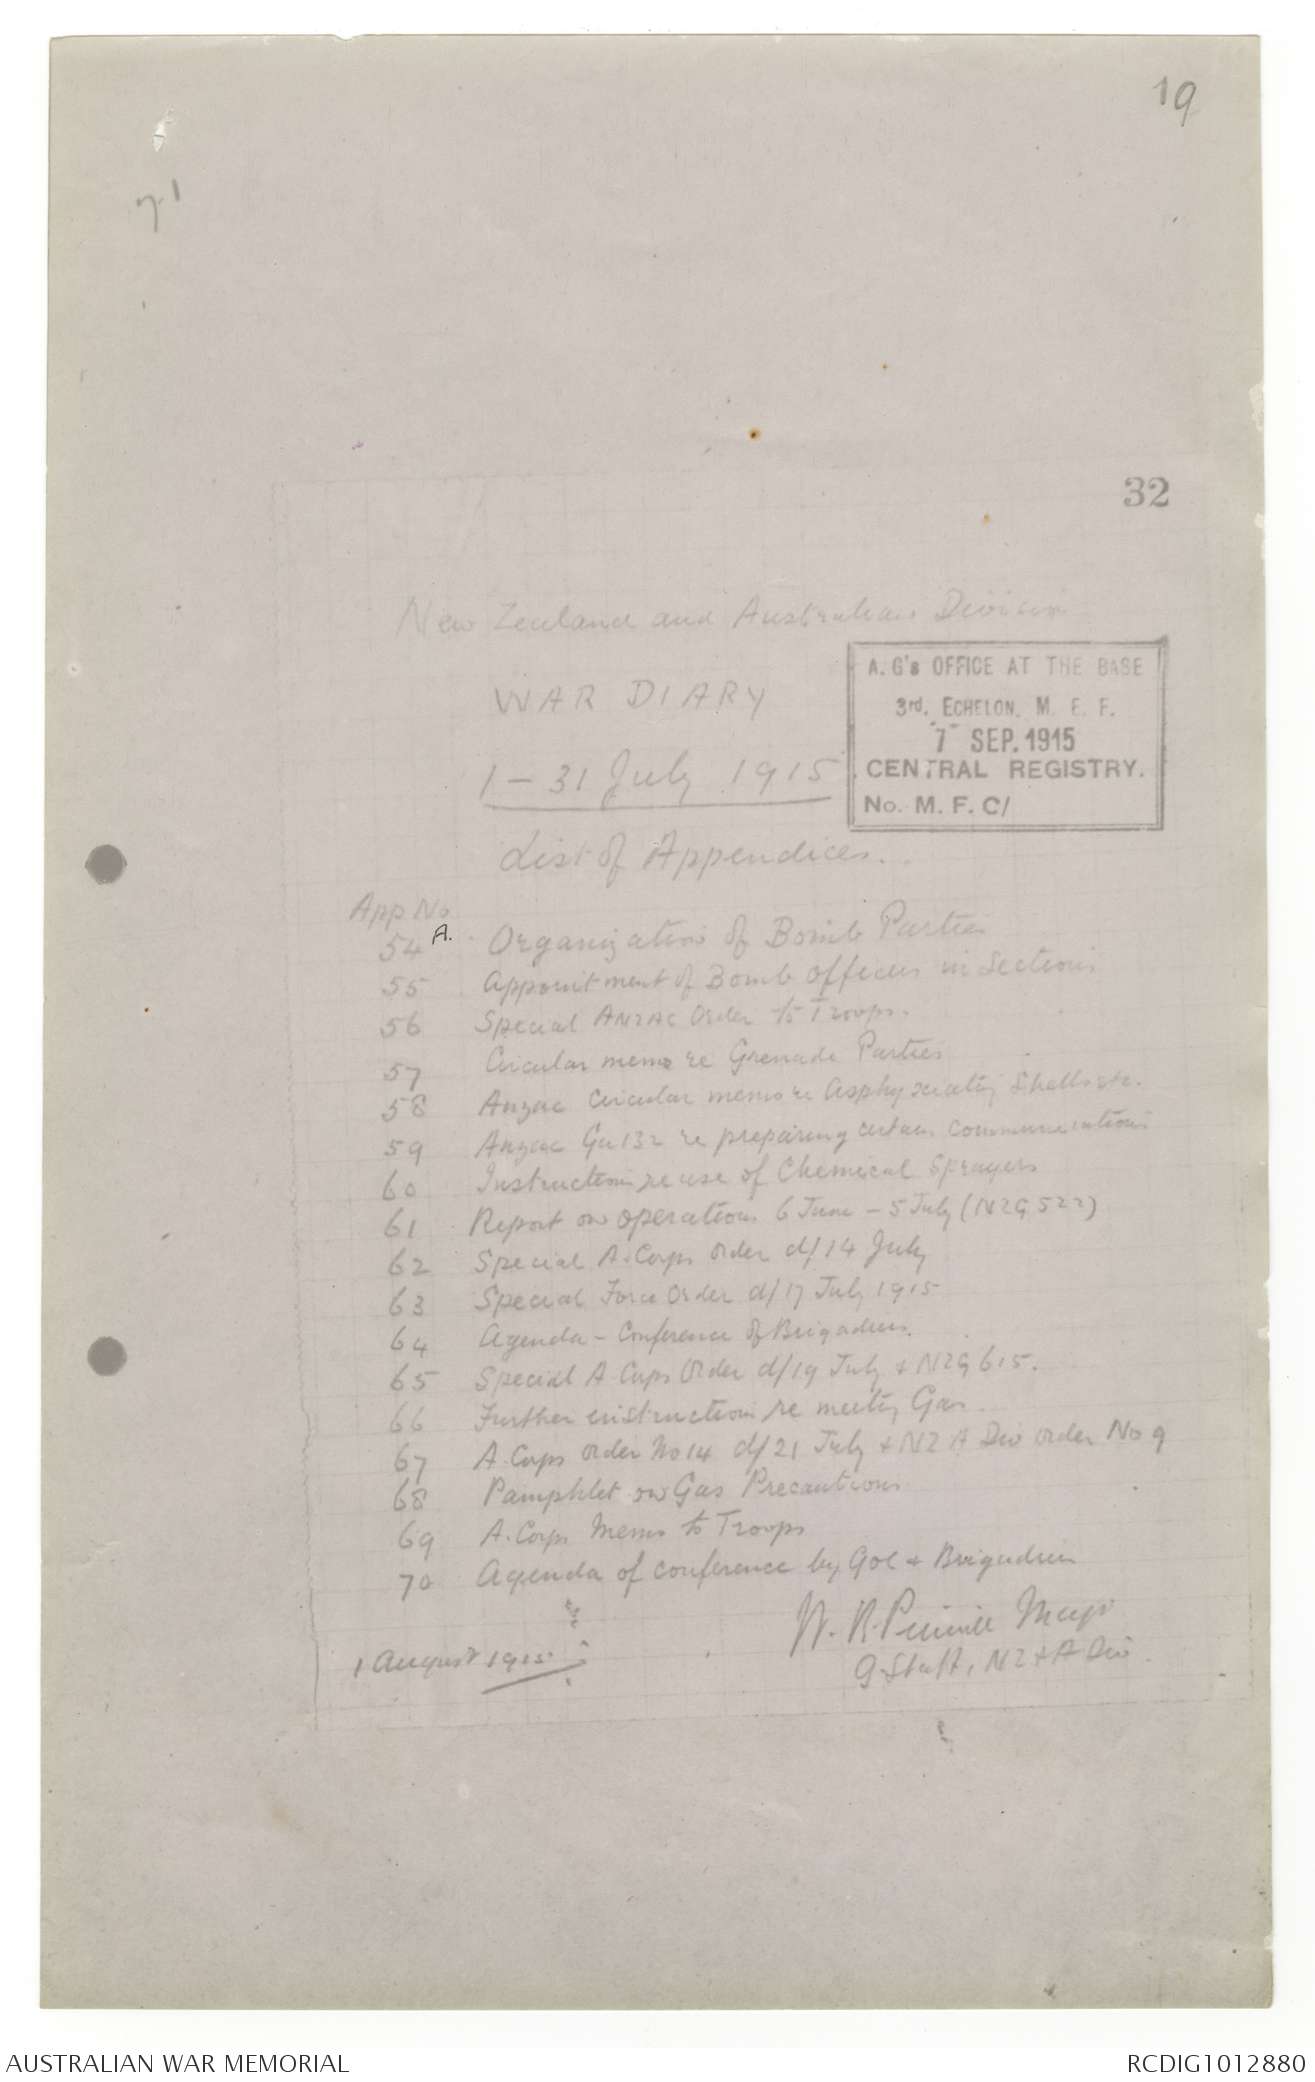 19
71
32
New Zealand and Australian Division
WAR DIARY
1 - 31 July 1915
A. G's OFFICE AT THE BASE
3rd. ECHELON. M. E. F.
7 SEP. 1915
CENTRAL REGISTRY.
No. M. F. C/
List of Appendices.
App No
54 A. Organization of Bomb Parties
55 Appointment of Bomb Officers in Sections
56 Special ANZAC Order to Troops.
57 Circular memo re Grenade Parties
58 Anzac Circular memo re Asphyxiating Shells etc.
59 Anzac Ga 132 re preparing certain communications
60 Instructions re use of Chemical Sprayers
61 Report on operations 6 June - 5 July (NZG 522)
62 Special A. Corps Order d/14 July
63 Special Force Order d/17 July 1915
64 Agenda - Conference of Brigadiers.
65 Special A Corps Order d/19 July + NZG 615.
66 Further instructions re meeting Gas.
67 A. Corps order No 14 d/21 July + NZ A Div order No 9
68 Pamphlet on Gas Precautions
69 A. Corps Memo to Troops
70 Agenda of conference by GOC + Brigadiers
W. R. Major
1 August 1915
G. Staff, NZ + A Div
AUSTRALIAN WAR MEMORIAL
RCDIG1012880